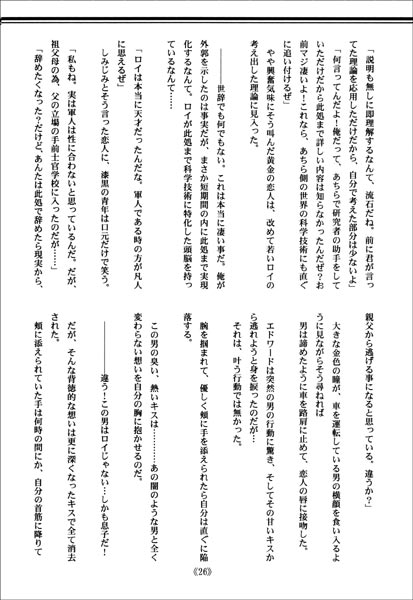 「説明も無しに即理解するなんて、流石だね。前に君が言っ
てた理論を応用しただけだから、自分で考えた部分は少ないよ」
「何言ってんだよ！俺だって、あちらで研究者の助手をして
いただけだから此処まで詳しい内容は知らなかったんだぜ？お
前マジ凄いよ！これなら、あちら側の世界の科学技術にも直ぐ
に追い付けるぜ」
やや興奮気味にそう叫んだ黄金の恋人は、改めて若いロイの
考え出した理論に見入った。
―――――世辞でも何でもない。これは本当に凄い事だ。俺が
外郭を示したのは事実だが、まさか短期間の内に此処まで実現
化するなんて。ロイが此処まで科学技術に特化した頭脳を持っ
ているなんて……
「ロイは本当に天才だったんだな。軍人である時の方が凡人
に思えるぜ」
しみじみとそう言った恋人に、漆黒の青年は口元だけで笑う。
「私もね。実は軍人は性に合わないと思っているんだ。だが、
祖父母の為、父の立場の手前士官学校に入ったのだが……」
「辞めたくなった？だけど、あんたは此処で辞めたら現実から、
親父から逃げる事になると思っている。違うか？」
大きな金色の瞳が、車を運転している男の横顔を食い入るよ
うに見ながらそう尋ねれば
男は諦めたように車を路肩に止めて、恋人の唇に接吻した。
エドワードは突然の男の行動に驚き、そしてその甘いキスか
ら逃れようと身を捩ったのだが…
それは、叶う行動では無かった。
腕を掴まれて、優しく頬に手を添えられたら自分は直ぐに陥
落する。
この男の臭い、熱いキスは…………あの闇のような男と全く
変わらない想いを自分の胸に抱かせるのだ。
―――――違う！この男はロイじゃない…しかも息子だ！
だが、そんな背徳的な想いは更に深くなったキスで全て消去
された。
頬に添えられていた手は何時の間にか、自分の首筋に降りて
《26》